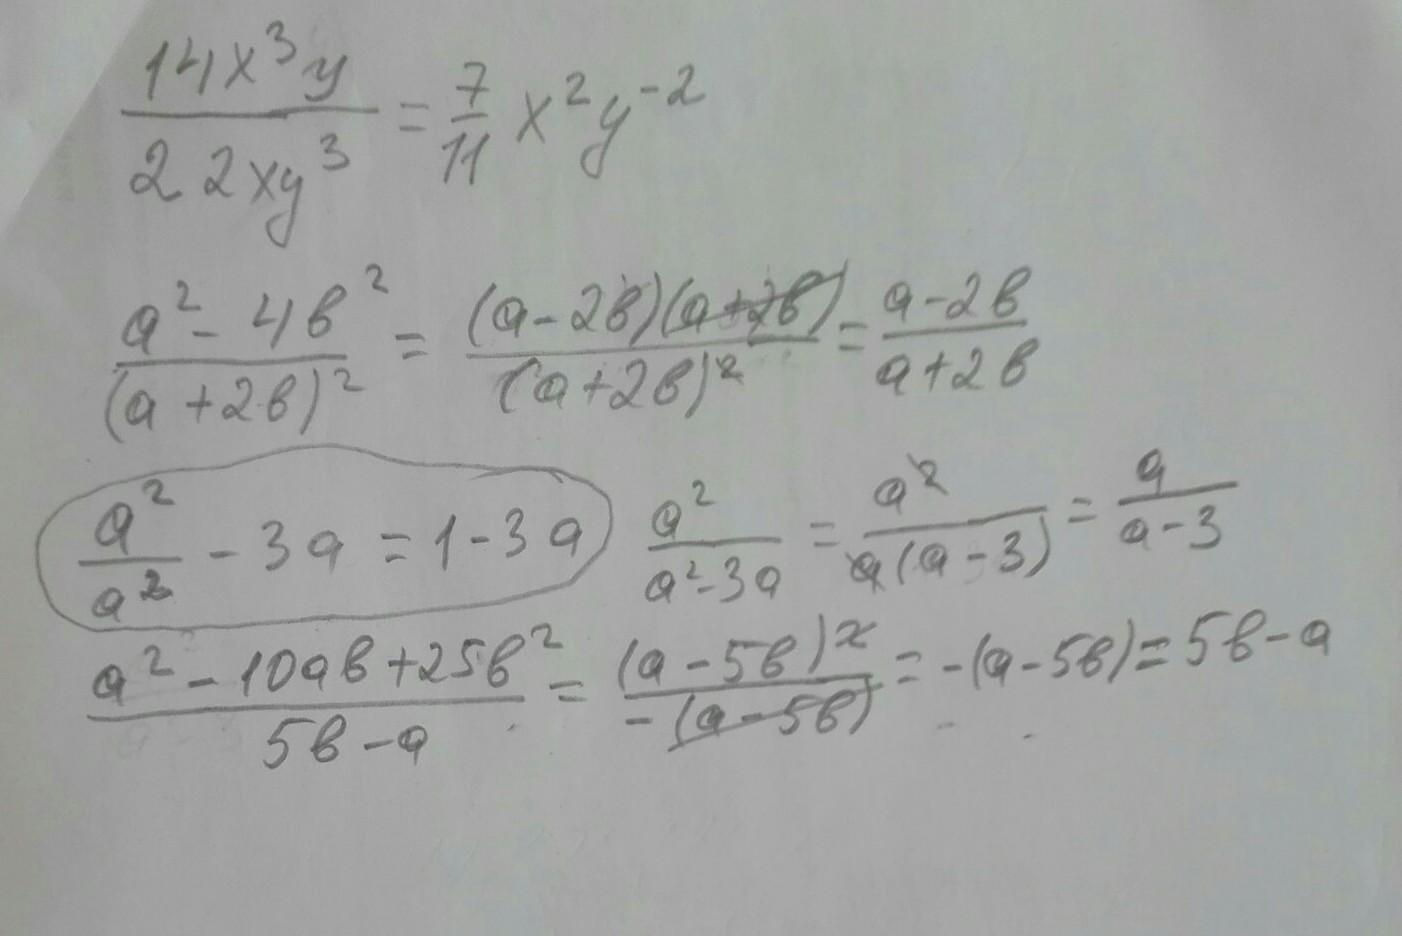 14x³y/22xy³ = 7/11 x²y⁻²
a² - 4в²/(a + 2в)² = (a - 2в)(a + 2в)/(a + 2в)² = a - 2в/a + 2в
a²/a² - 3a = 1 - 3a a²/a² - 3a = a²/a(a - 3) = a/a - 3
a² - 10aв + 25в²/5в - a = (a - 5в)²/-(a - 5в) = -(a - 5в) = 5в - a